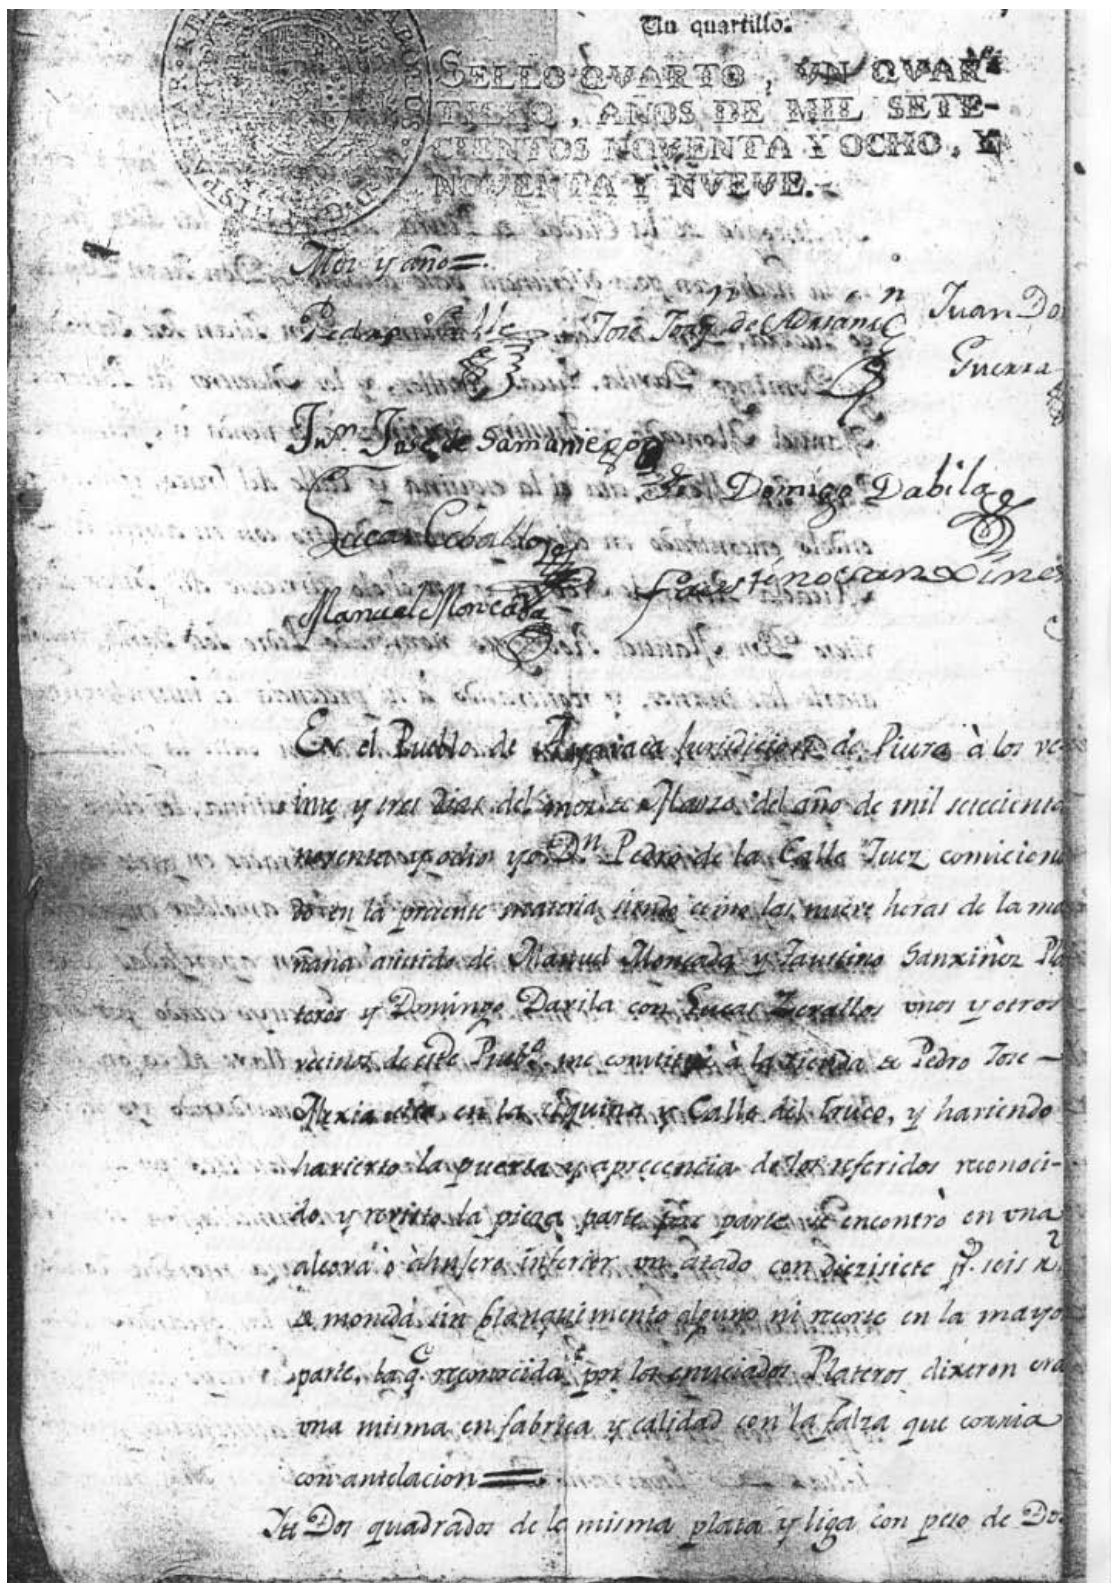 Un quartillo.
SELLO QVARTO, VN QVAR-
TILLO, AÑOS DE MIL SETE-
CIENTOS NOVENTA Y OCHO, Y
NOVENTA Y NVEVE.
Mes y año
Pedro Calle Jose Joaqn de Adriansen Juan Do
Guerra
Jun. Jose de Samaniego
Jose Domigo Dabila
Lucas Ceballos
Faustino Sanxines
Manuel Moncada
En el Pueblo de Ayavaca Jurisdicion de Piura à los ve-
inte y tres dias del mes de Marzo del año de mil setecientos
noventa y ocho yo Dn Pedro de la Calle Juez
en la precente materia siendo como las nueve horas de la ma
ñana de Manuel Moncada y Faustino Sanxinez Pla
teros y Domingo Davila con Lucas Zevallos vnos y otros
vecinos de este Pueblo me à la tienda de Pedro Jose
Mexia en la esquina y Calle del truco, y haviendo
havierto la puerta y aprecencia de los referidos reconoci-
do, y revisto la pieza parte por parte se encontrò en vna
alcova ò inferior vn atado con diezisiete ps. seis rs
de moneda sin blanquimento alguno ni recorte en la mayo
parte, la q. reconocida por los enuciados Plateros dixeron era
vna misma en fabrica y calidad con la falza que corria
con antelacion
Itt Dos quadrados de la misma plata y liga con peso de Do